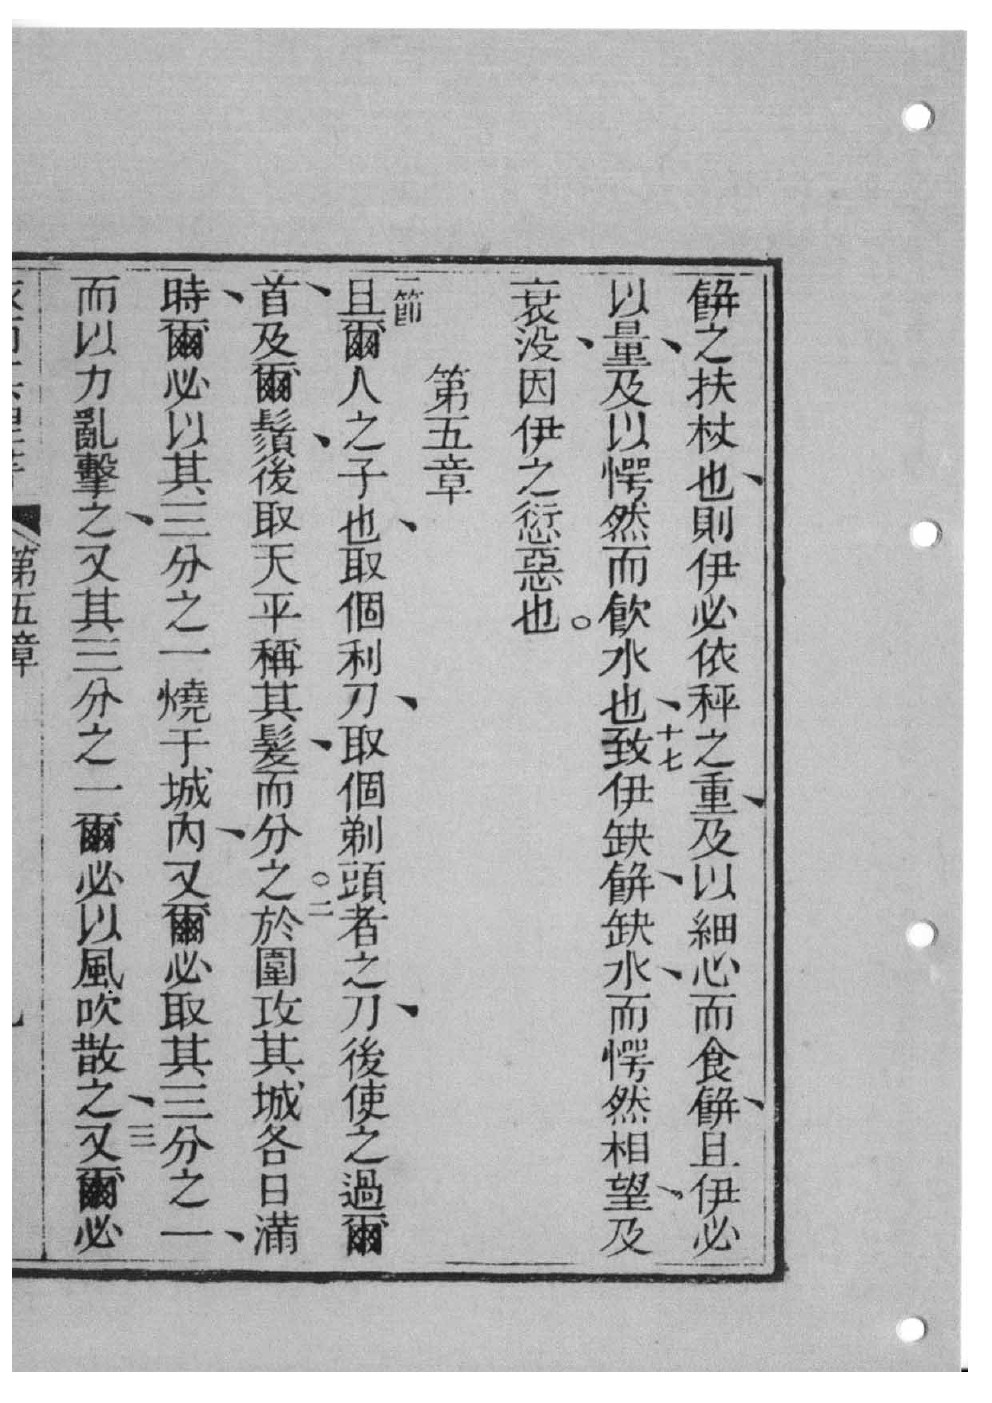 餅之扶杖、也則伊必依秤之重、及以細心而食餅、且伊必
以量、及以愕然而飲水也、十七致伊缺餅、缺水、而愕然相望、及
衰没、因伊之愆惡也。
第五章
一節且爾人之子也、取個利刀、取個剃頭者之刀、後使之過爾
首、及爾鬚、後取天平稱其髮、而分之○二於圍攻其城各日滿
時、爾必以其三分之一燒于城內、又爾必取其三分之一、
而以力亂擊之、又其三分之一爾必以風吹散之、三又爾必
第五章